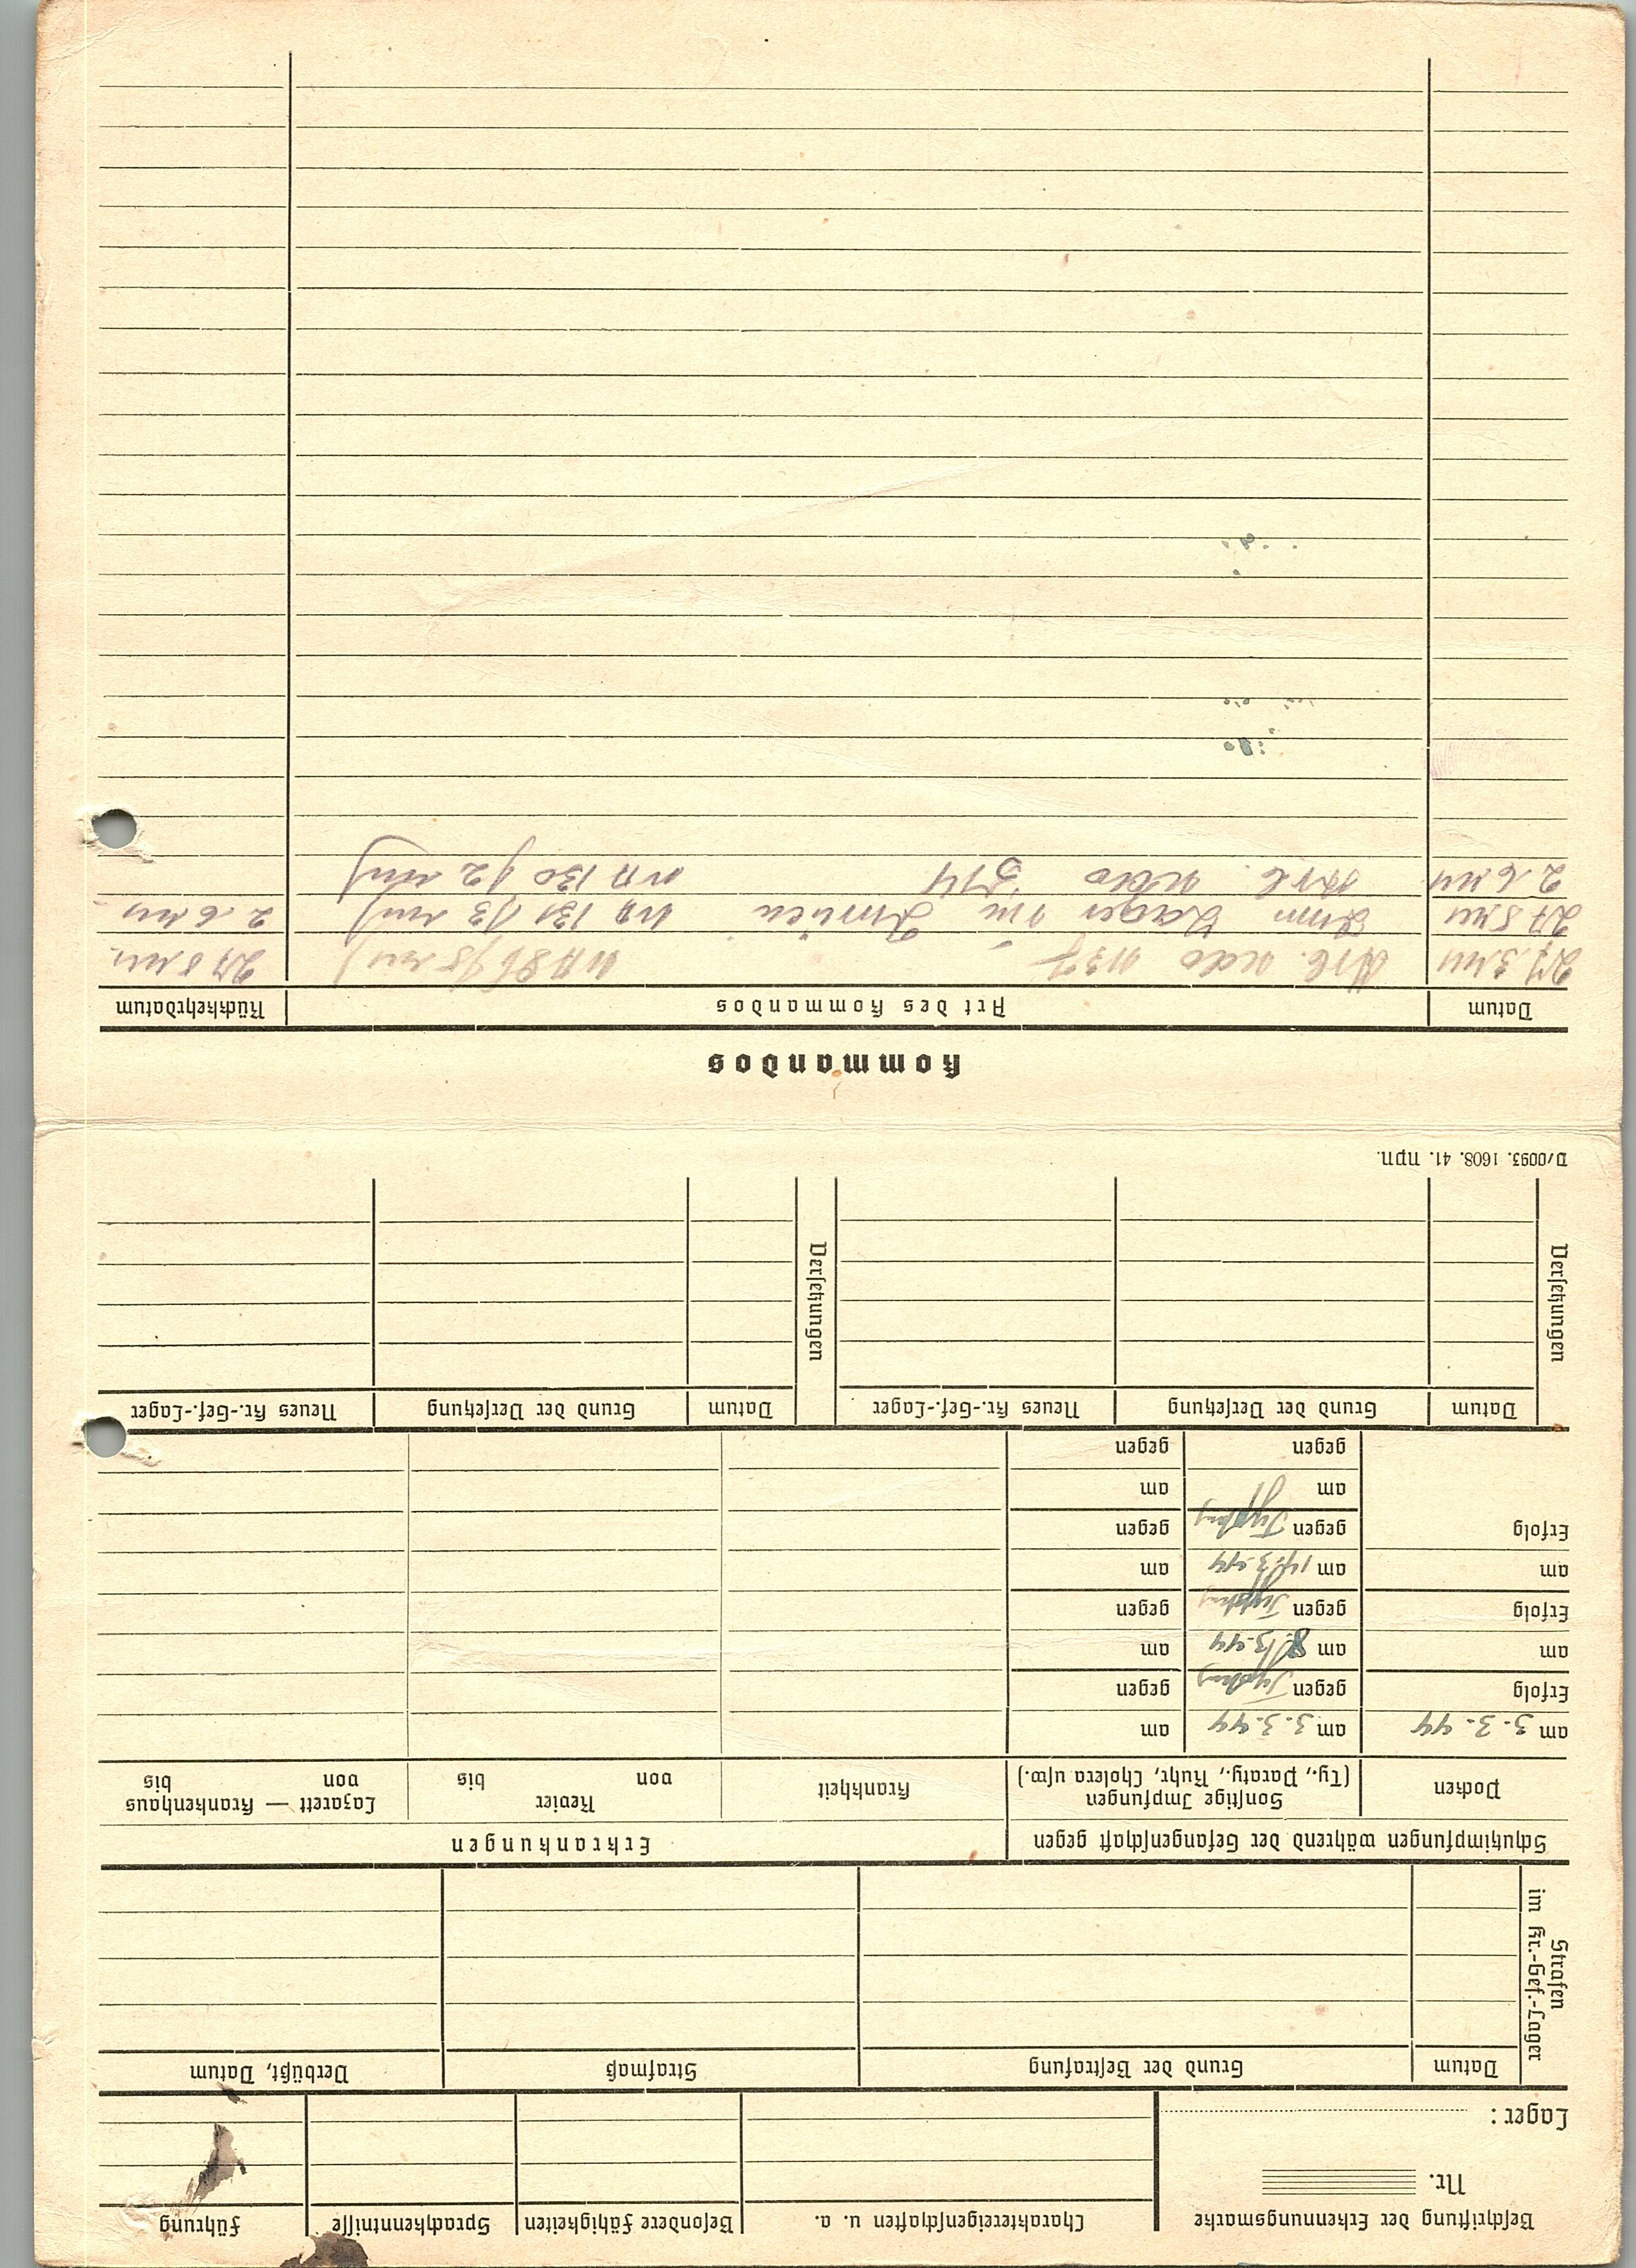 Beschriftung der Erkennungsmarke
Nr.
Lager:
Charaktereigenschaften u. a.
Besondere Fähigkeiten
Sprachkenntnisse
Führung
Strafen
im Kr.-Gef.-Lager
Datum
Grund der Bestrafung
Strafmaß
Verbüßt, Datum
Schutzimpfungen während der Gefangenschaft gegen
Erkrankungen
Pocken
Sonstige Impfungen
(Ty., Paraty., Ruhr, Cholera usw.)
Krankheit
Revier
von bis
Lazarett — Krankenhaus
von bis
am 3.3.44 am 3.3.44 am
Erfolg gegen Typhus gegen
am am 8.3.44 am
Erfolg gegen Typhus gegen
am am 14.3.44 am
Erfolg gegen Typhus gegen
am am
gegen gegen
Versetzungen
Datum Grund der Versetzung Neues Kr.-Gef.-Lager
Versetzungen
Datum Grund der Versetzung Neues Kr.-Gef.-Lager
D/0093. 1608. 41. NPD.
Kommandos
Datum Art des Kommandos Rückkehrdatum
27.3.44 Arb. Kdo 1137
27.5.44 Lager 2.6.44
2.6.44 Arb. Kdo